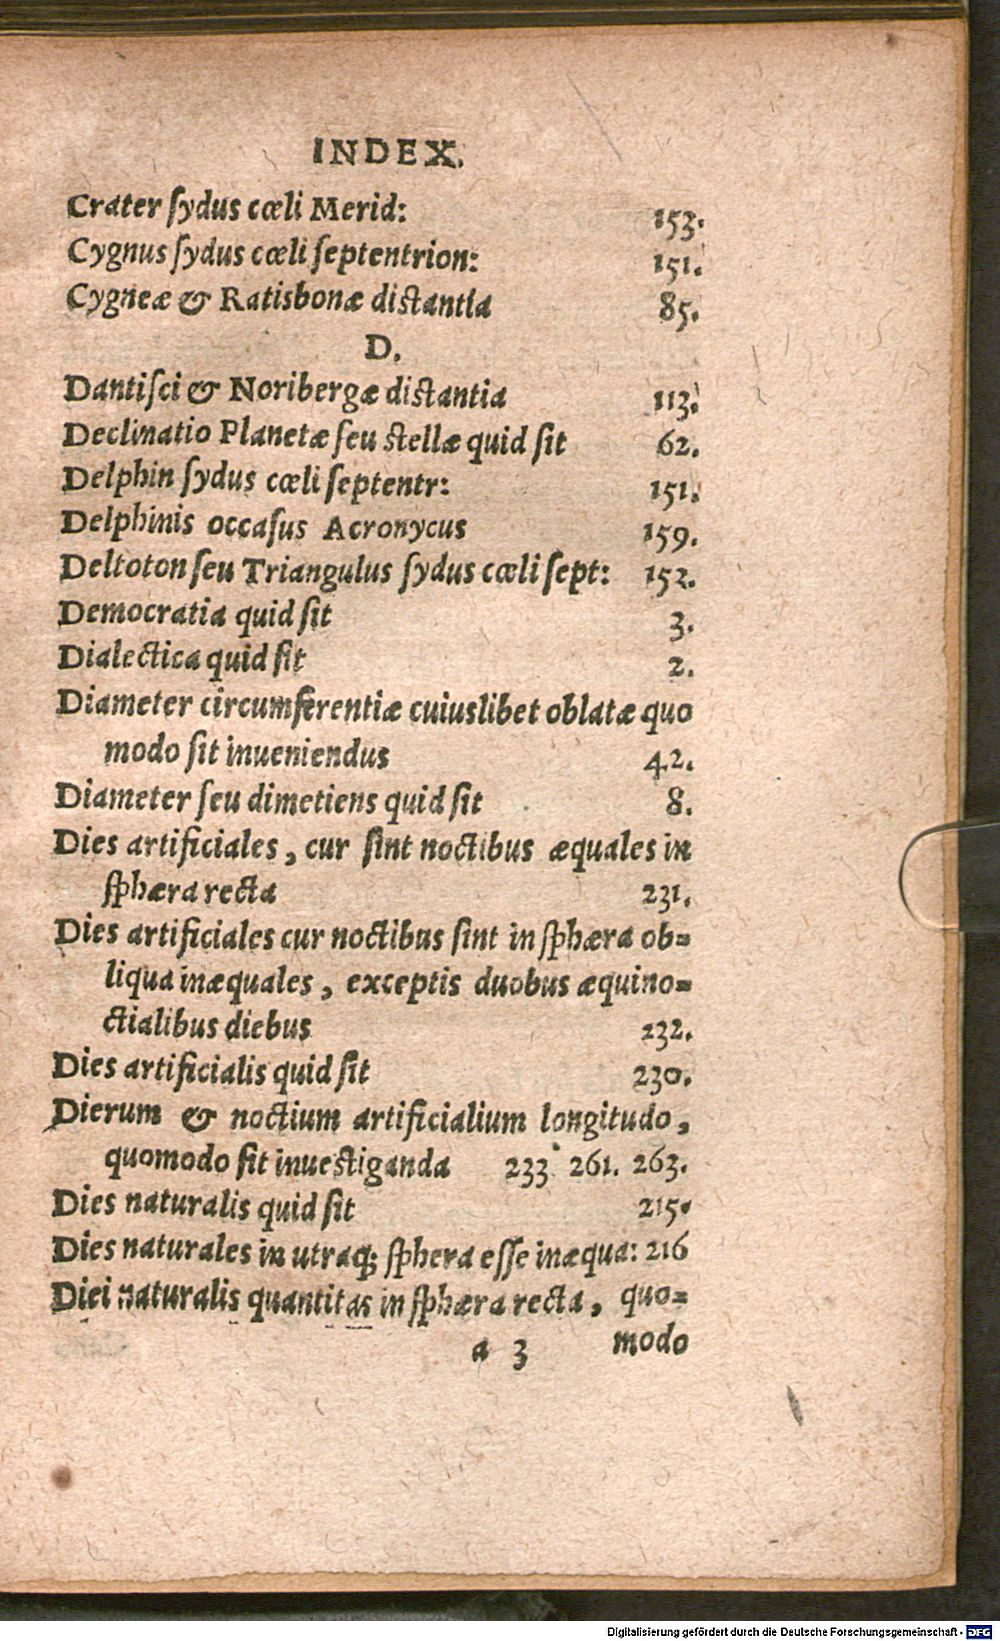 INDEX.
Crater ſydus cœli Merid: 153.
Cygnus ſydus cœli ſeptentrion: 151.
Cygneæ & Ratisbonæ distantia 85.
D.
Dantiſci & Noribergæ distantia 113.
Declinatio Planetæ ſeu stellæ quid ſit 62.
Delphin ſydus cœli ſeptentr: 151.
Delphinis occaſus Acronycus 159.
Deltoton ſeu Triangulus ſydus cœli ſept: 152.
Democratia quid ſit 3.
Dialectica quid ſit 2.
Diameter circumferentiæ cuiuslibet oblatæ quo
modo ſit inueniendus 42.
Diameter ſeu dimetiens quid ſit 8.
Dies artificiales, cur ſint noctibus æquales in
ſphæra recta 231.
Dies artificiales cur noctibus ſint in ſphæra ob=
liqua inæquales, exceptis duobus æquino=
ctialibus diebus 232.
Dies artificialis quid ſit 230.
Dierum & noctium artificialium longitudo,
quomodo ſit inuestiganda 233. 261. 263.
Dies naturalis quid ſit 215.
Dies naturales in utraq; ſphera eſſe inæqua: 216
Diei naturalis quantitas in ſphæra recta, quo=
a 3 modo
Digitalisierung gefördert durch die Deutsche Forschungsgemeinschaft - DFG